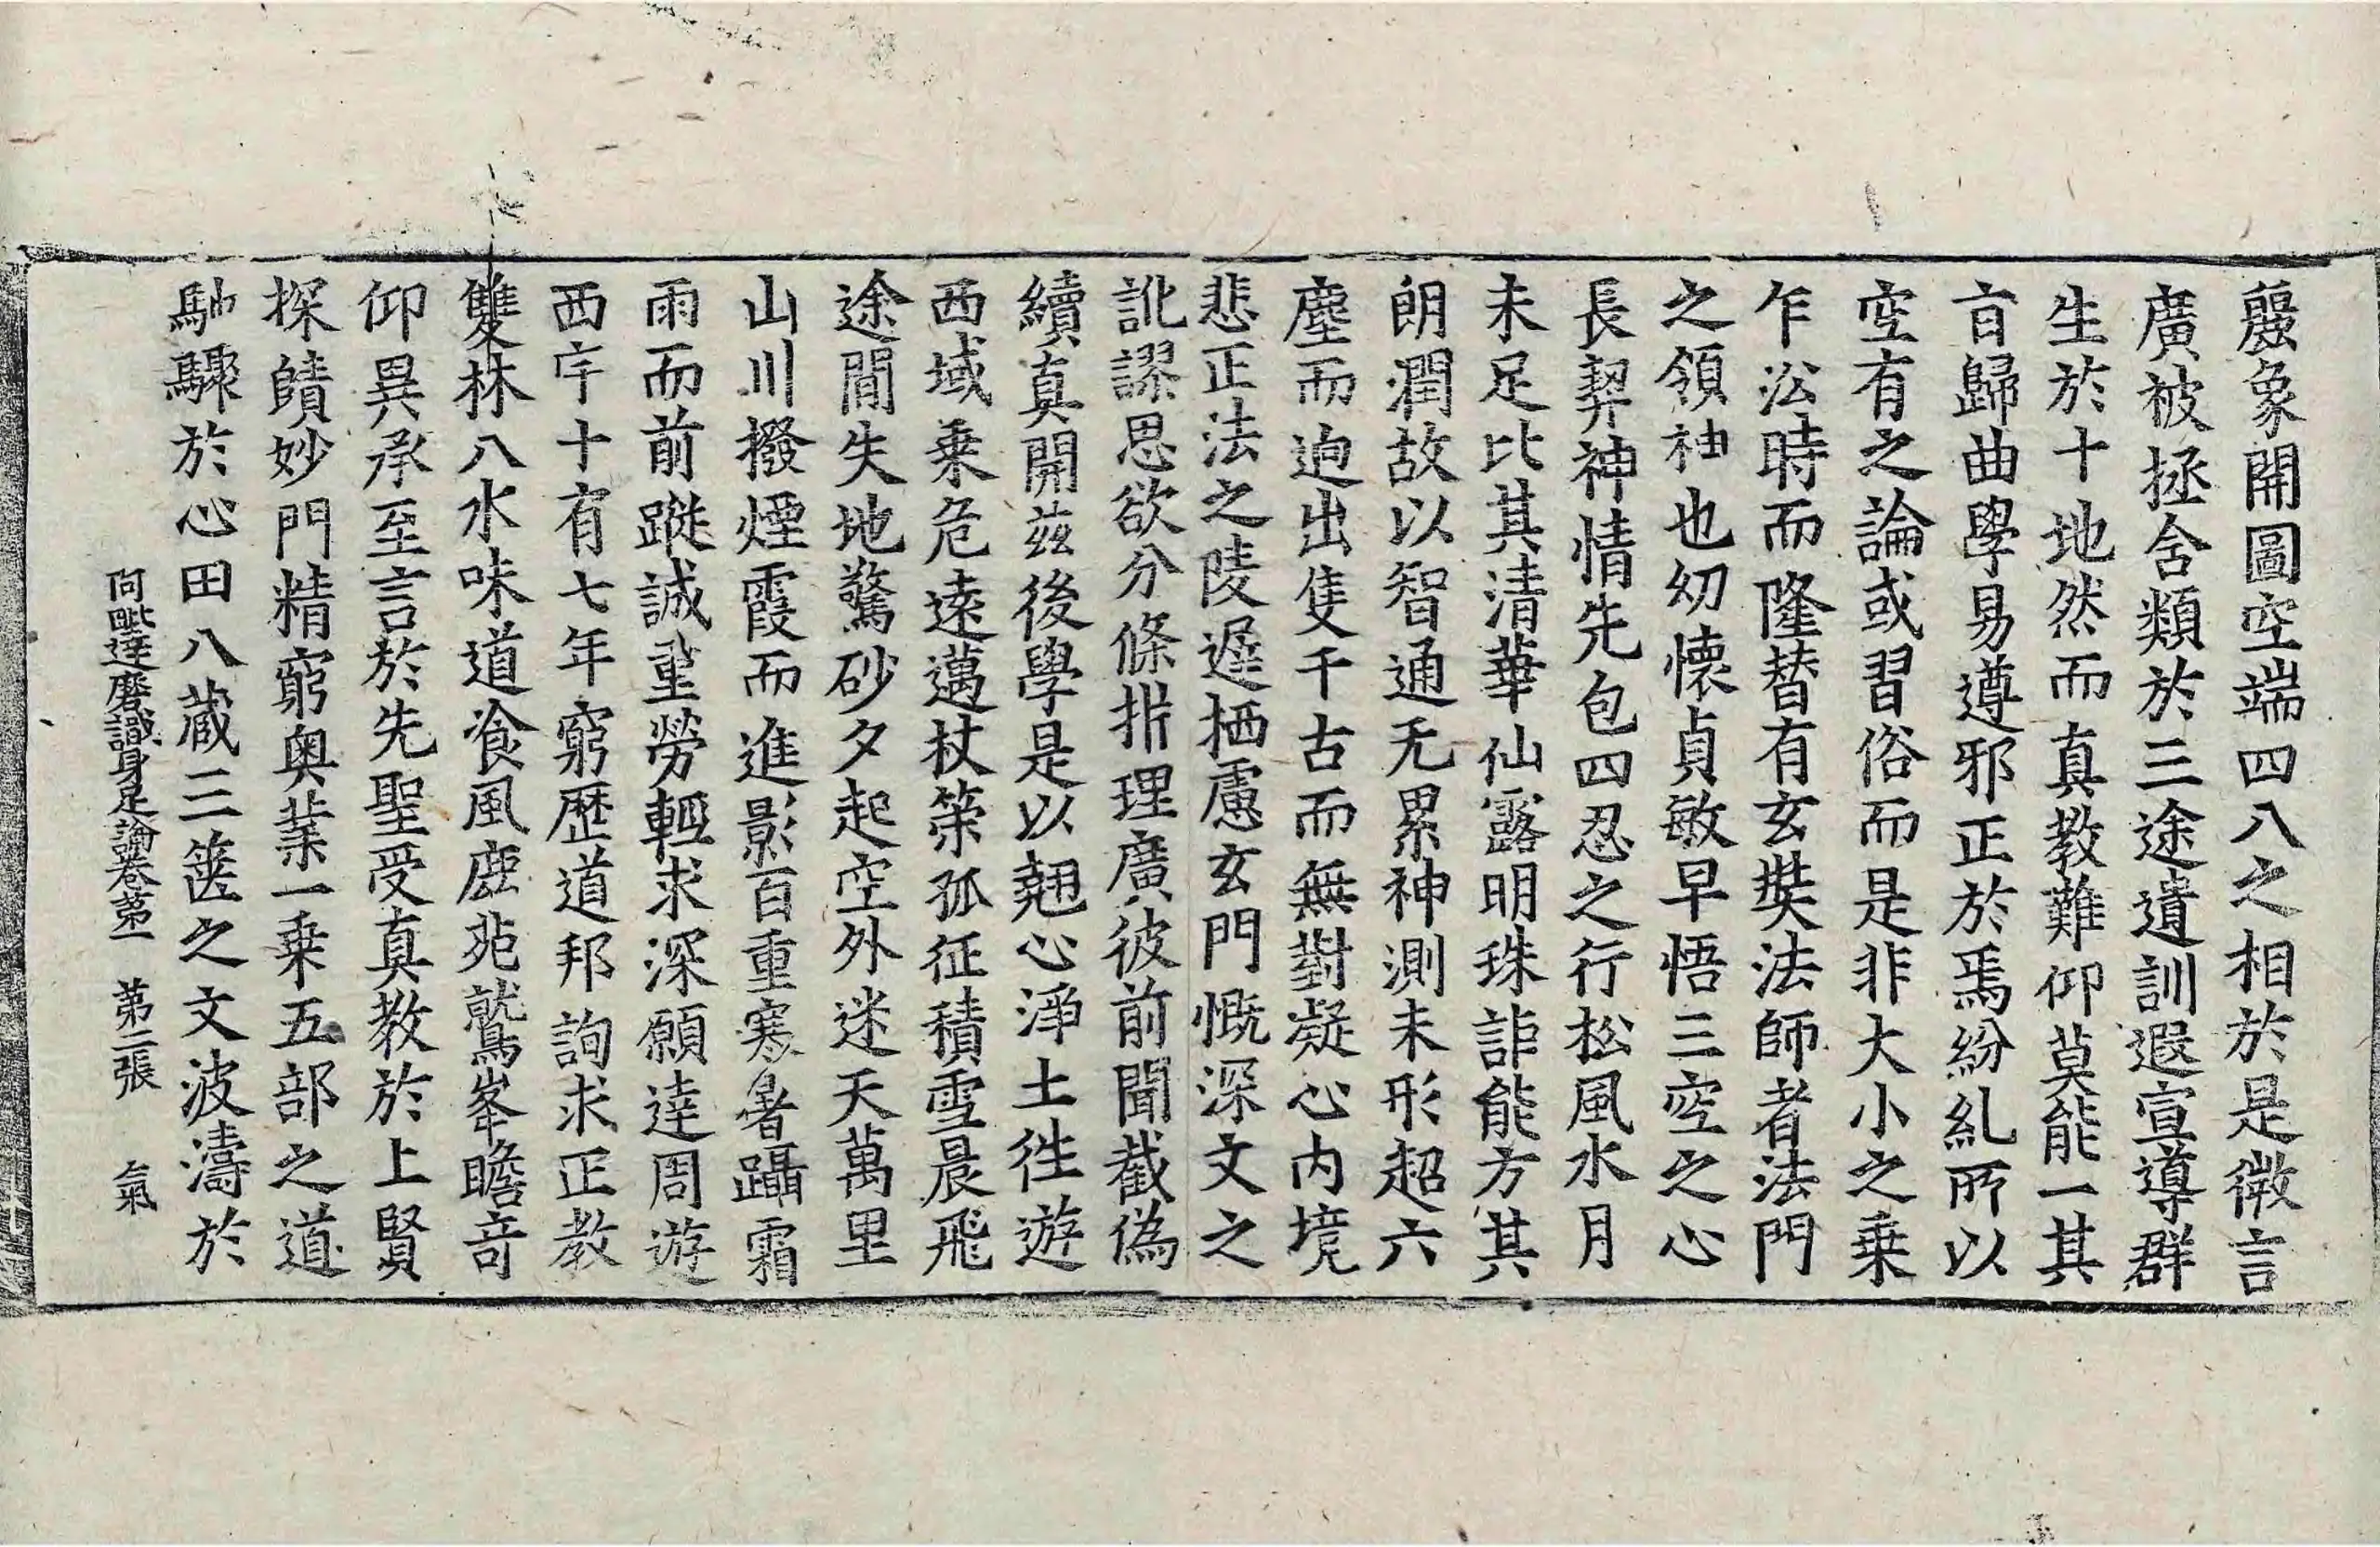 麗象開圖空端四八之相於是微言
廣被拯含類於三途遺訓遐宣導群
生於十地然而真教難仰莫能一其
盲歸曲學易遵邪正於焉紛糺所以
空有之論或習俗而是非大小之乗
乍沿時而隆替有玄奘法師者法門
之領袖也幼懷貞敏早悟三空之心
長契神情先包四忍之行松風水月
未足比其清華仙露明珠詎能方其
朗潤故以智通无累神測未形超六
塵而迥出隻千古而無對凝心內境
悲正法之陵遲栖慮玄門慨深文之
訛謬思欲分條析理廣彼前聞截偽
續真開茲後學是以翹心淨土往遊
西域乗危遠邁杖策孤征積雪晨飛
途閒失地驚砂夕起空外迷天萬里
山川撥煙霞而進影百重寒暑躡霜
雨而前蹤誠重勞輕求深願達周遊
西宇十有七年窮歷道邦詢求正教
雙林八水味道飡風鹿苑鷲峯瞻奇
仰異承至言於先聖受真教於上賢
探賾妙門精窮奥業一乗五部之道
馳驟於心田八藏三篋之文波濤於
阿毗達磨識身足論卷第一　第二張　氣